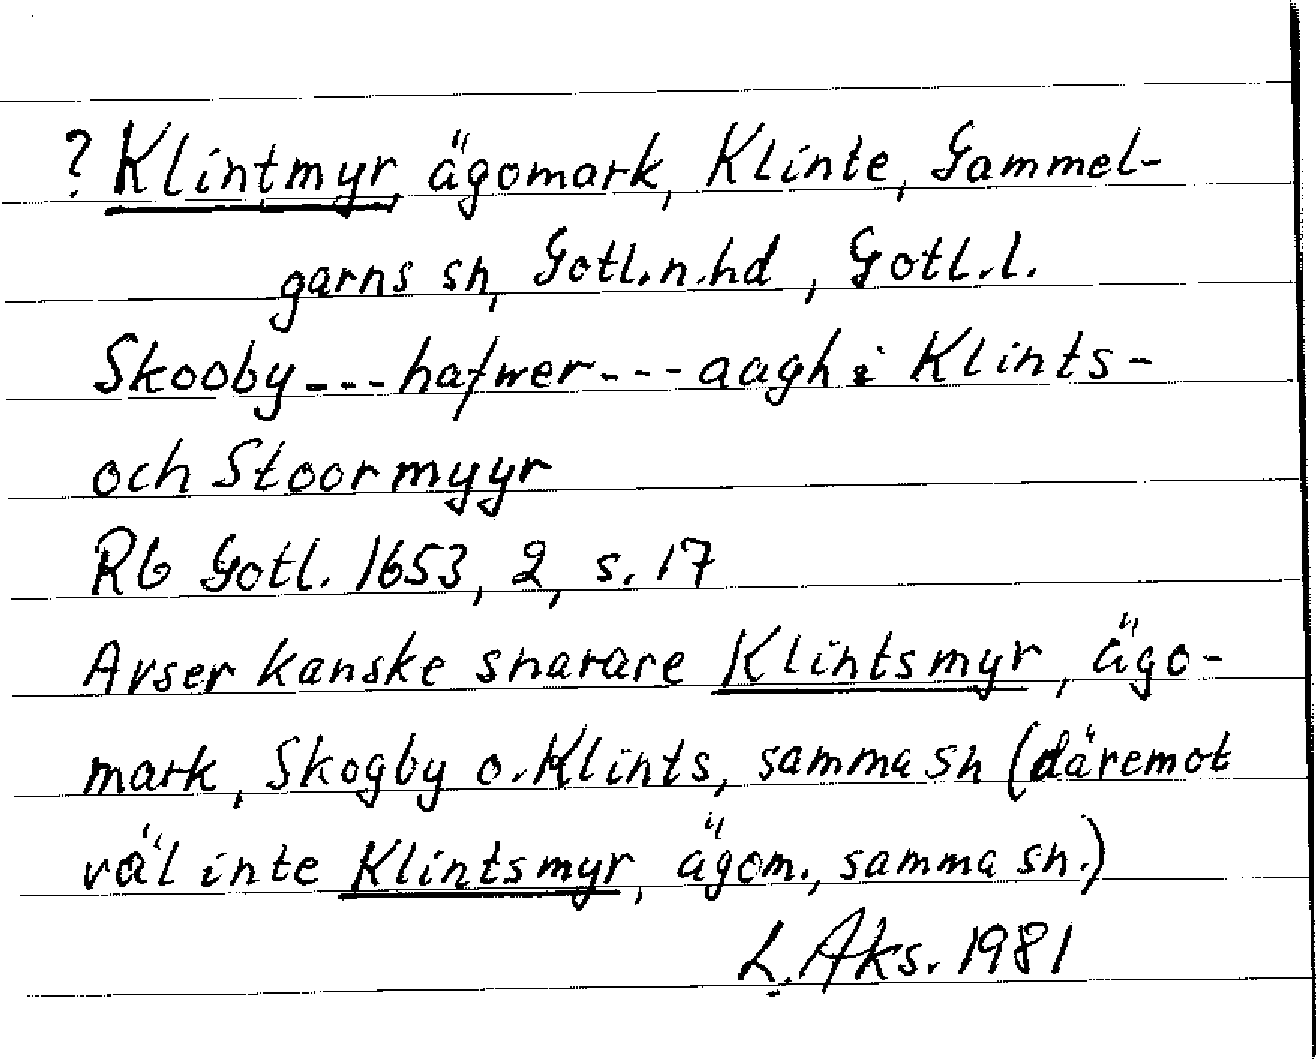 ? Klintmyr, ägomark, Klinte, Gammel-
garns sn, Gotl.n.hd, Gotl.l.
Skooby---hafwer---aagh i Klints-
och Stoormyyr
Rb Gotl. 1653, 2, s. 17
Avser kanske snarare Klintsmyr, ägo-
mark, Skogby o. Klints, samma sn (däremot
väl inte Klintsmyr, ägom., samma sn.)
L. Aks. 1981